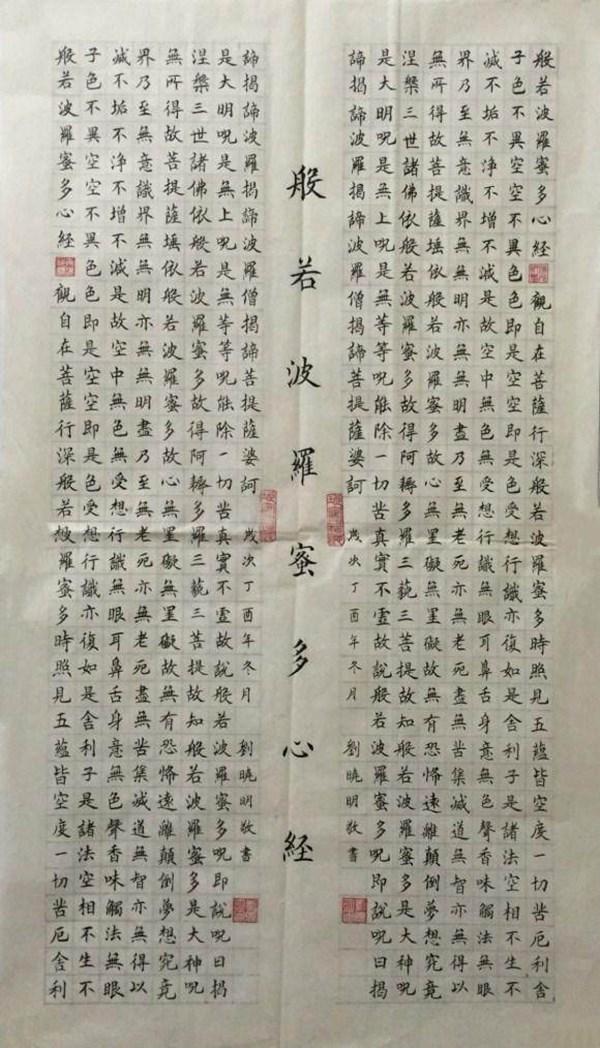 般若波羅蜜多心経觀自在菩薩行深般若波羅蜜多時照見五蘊皆空度一切苦厄利舍
子色不異空空不異色色即是空空即是色受想行識亦復如是舍利子是諸法空相不生不
滅不垢不淨不增不減是故空中無色無受想行識無眼耳鼻舌身意無色聲香味觸法無眼
界乃至無意識界無無明亦無無明盡乃至無老死亦無老死盡無苦集滅道無智亦無得以
無所得故菩提薩埵依般若波羅蜜多故心無罣礙無罣礙故無有恐怖遠離顛倒夢想究竟
涅槃三世諸佛依般若波羅蜜多故得阿耨多羅三藐三菩提故知般若波羅蜜多是大神呪
是大明呪是無上呪是無等等呪能除一切苦真實不虛故說般若波羅蜜多呪即說呪曰揭
諦揭諦波羅揭諦波羅僧揭諦菩提薩婆訶 歲次丁酉年冬月 劉曉明敬書
般若波羅蜜多心経
般若波羅蜜多心経觀自在菩薩行深般若波羅蜜多時照見五蘊皆空度一切苦厄舍利
子色不異空空不異色色即是空空即是色受想行識亦復如是舍利子是諸法空相不生不
滅不垢不淨不增不減是故空中無色無受想行識無眼耳鼻舌身意無色聲香味觸法無眼
界乃至無意識界無無明亦無無明盡乃至無老死亦無老死盡無苦集滅道無智亦無得以
無所得故菩提薩埵依般若波羅蜜多故心無罣礙無罣礙故無有恐怖遠離顛倒夢想究竟
涅槃三世諸佛依般若波羅蜜多故得阿耨多羅三藐三菩提故知般若波羅蜜多是大神呪
是大明呪是無上呪是無等等呪能除一切苦真實不虛故說般若波羅蜜多呪即說呪曰揭
諦揭諦波羅揭諦波羅僧揭諦菩提薩婆訶 歲次丁酉年冬月 劉曉明敬書